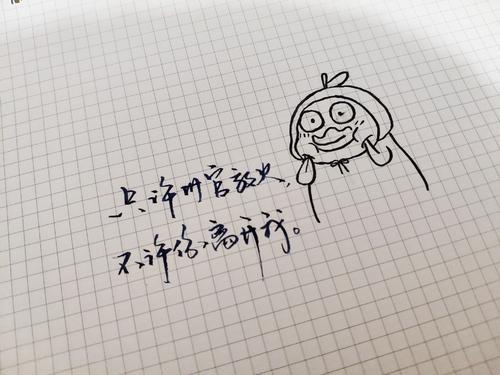 只许州官放火，
不许你离开我。